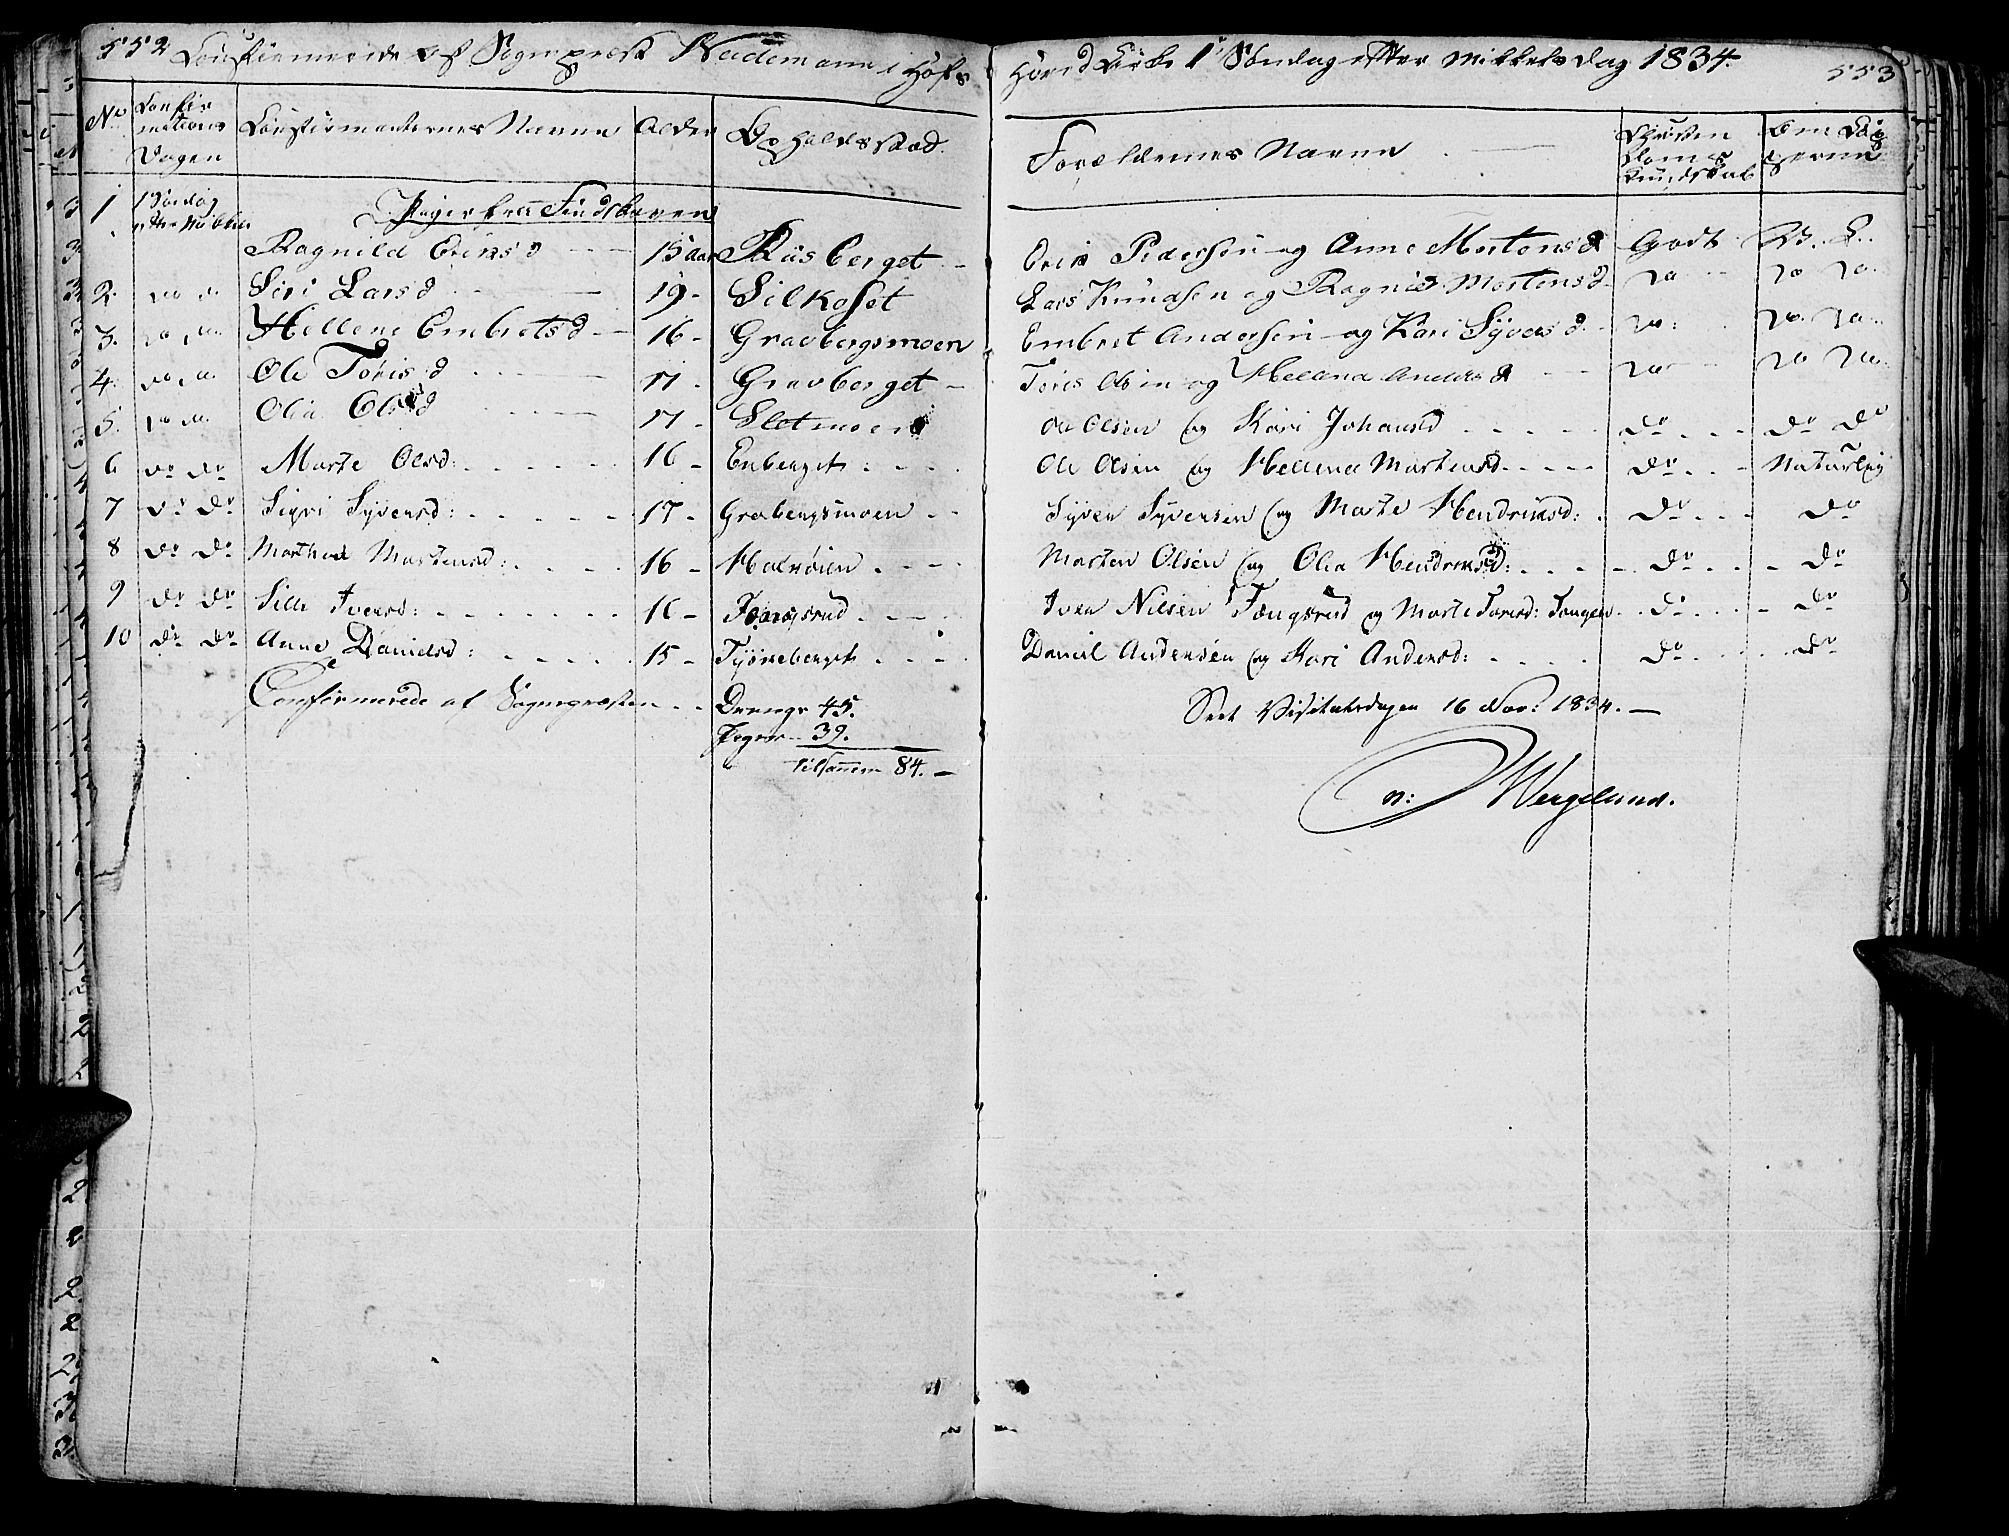 552 Confirmerede af Sognepræst Nademann i Hofs
Hoved Kirke 1 Søndag efter Mikkelsdag 1834. 553
No Confirmations Dagen Confirmanternes Navne Alder Opholdssted
Forældrenes Navne Christendoms Kundskab
1 1 Søndag efter Mikkeli Piger fra Findskoven
Ragnild Erichsd 15 aar Riisberget Erich Pedersen og Anne Mortensd Godt V. L.
2. do do Siri Larsd 19 - Silkoset Lars Knudsen og Ragnid Mortensd do do do
3. do do Hellene Embretsd 16 - Gravbergsmoen Embret Andersen og Kari Syversd do do do
4. do do Ole Törisd 17 - Gravberget Töris Olsen og Hellena Andersd do do do
5. do do Olia Olsd 17 - Sletmoen Ole Olsen og Kari Johansd do do do
6 do do Marte Olsd: 16 - Enberget Ole Olsen og Hellena Martensd do Naturlig
7 do do Sigri Syversd: 17 - Grabergsmoen Syver Syversen og Marte Hendriksd: do do
8 do do Marthea Martensd: 16 - Halsøien Marten Olsen og Olea Hendriksd: do do
9 do do Sille Iversd: 16 - Tængsrud Iver Nilsen Tængsrud og Marte Toresd: Tangen do do
10 do do Anne Danielsd: 15 - Tyskeberget Daniel Andersen og Kari Andersd: do do
Confirmerede af Sognepræsten - - Drenge 45.
Piger - 39.
tilsammen 84. -
Seet Visitatsdagen 16 Nov: 1834. -
N: Wergeland.